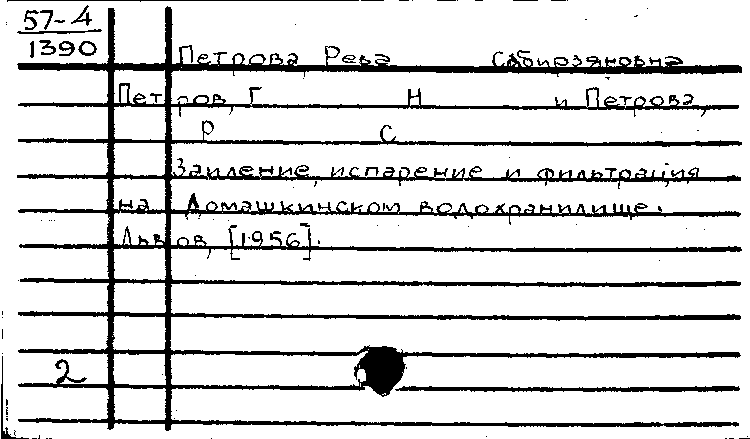 57-4
1390
Петрова Рева Сабирзяновна
Петров, Г Н и Петрова,
Р С
Заиление, испарение и фильтрация
на Домашкинском водохранилище.
Львов, [1956].
2